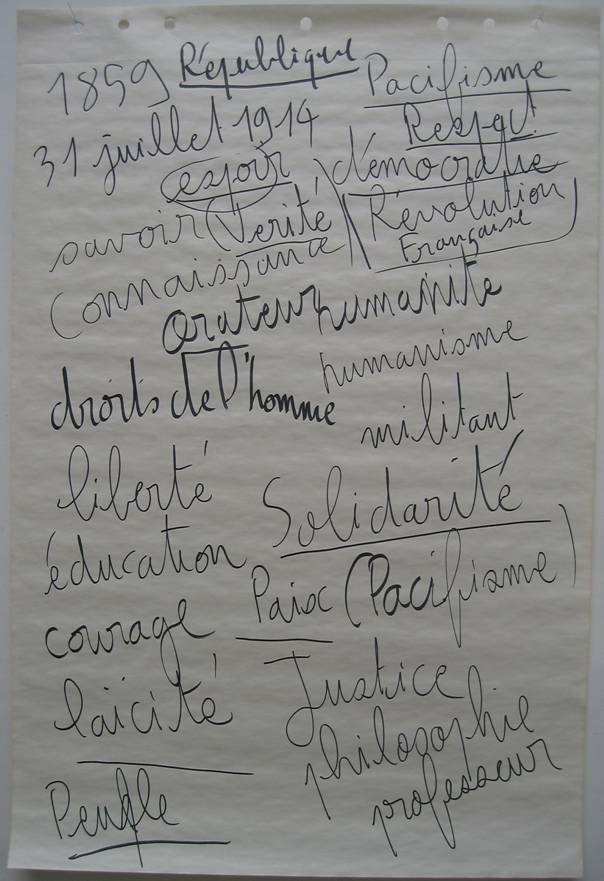 1859 République Pacifisme
31 juillet 1914 Respect
espoir démocratie
savoir Verité Révolution
Connaissance Française
Orateur humanité
droits de l'homme humanisme
militant
liberté Solidarité
éducation Paix (Pacifisme)
courage
laïcité Justice
philosophie
Peuple professeur